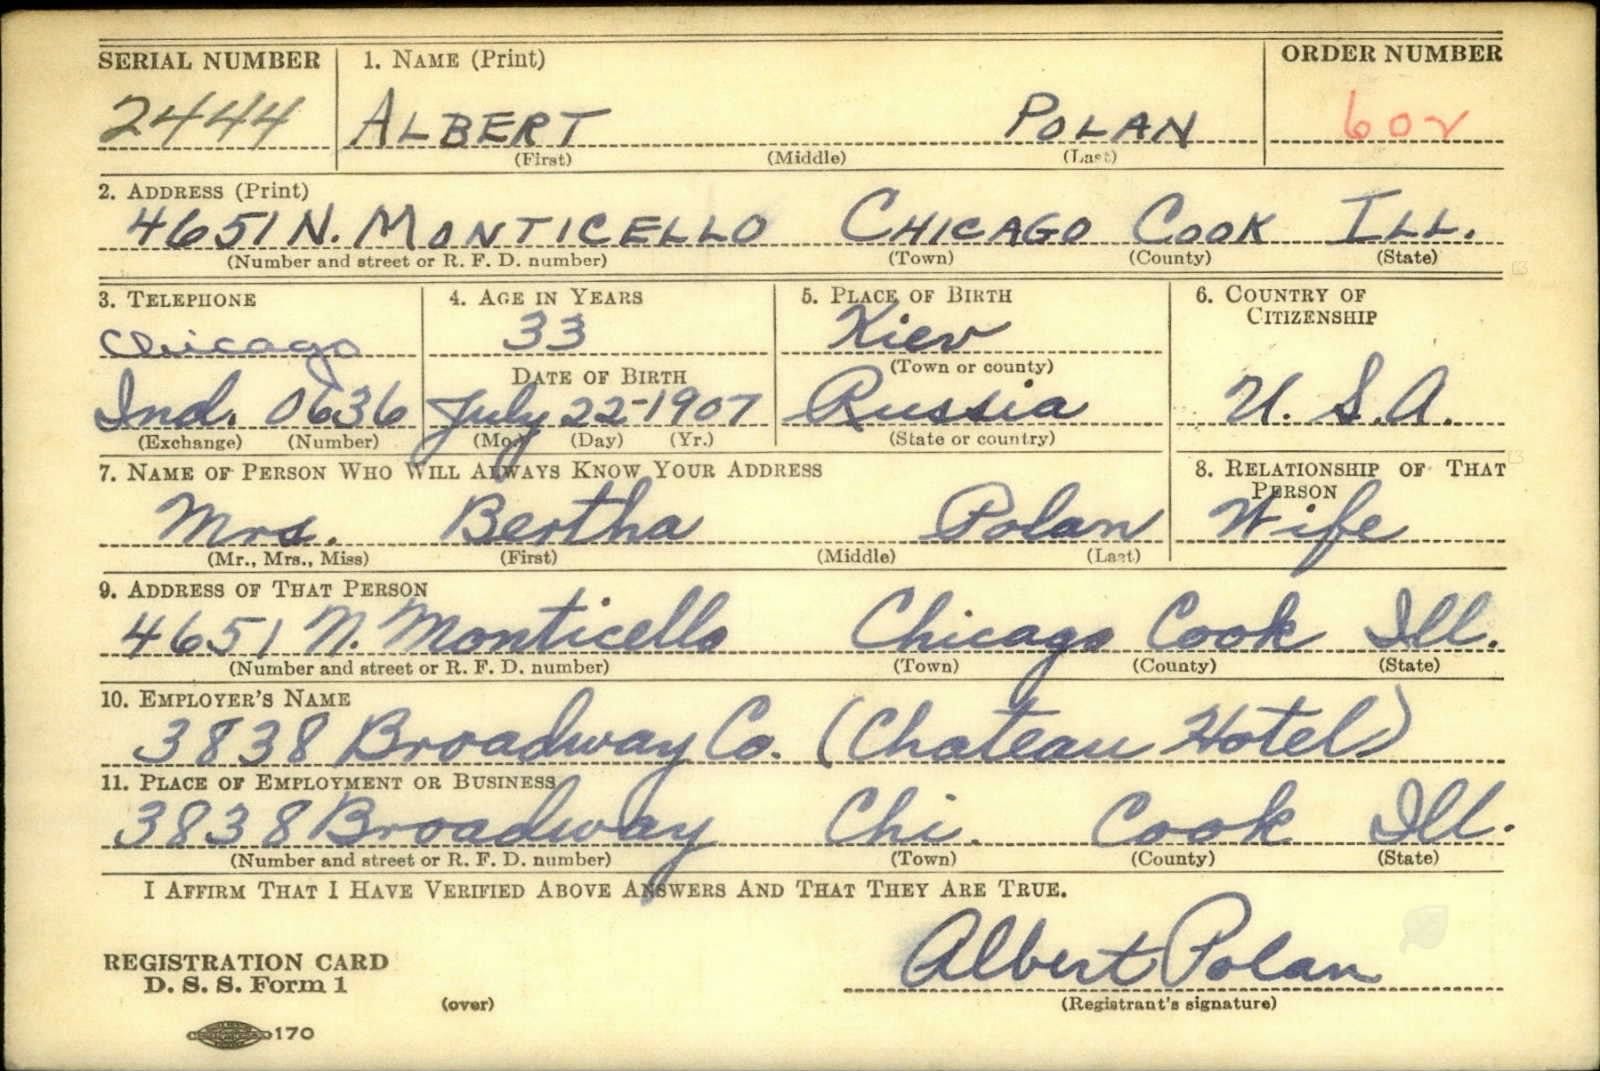 SERIAL NUMBER 1. NAME (Print) ORDER NUMBER
2444 ALBERT POLAN 602
(First) (Middle) (Last)
2. ADDRESS (Print)
4651 N. MONTICELLO CHICAGO COOK ILL.
(Number and street or R. F. D. number) (Town) (County) (State)
3. TELEPHONE 4. AGE IN YEARS 5. PLACE OF BIRTH 6. COUNTRY OF CITIZENSHIP
Chicago 33 Kiev
DATE OF BIRTH (Town or county)
Ind. 0636 July 22-1907 Russia U.S.A.
(Exchange) (Number) (Mo.) (Day) (Yr.) (State or country)
7. NAME OF PERSON WHO WILL ALWAYS KNOW YOUR ADDRESS 8. RELATIONSHIP OF THAT PERSON
Mrs. Bertha Polan Wife
(Mr., Mrs., Miss) (First) (Middle) (Last)
9. ADDRESS OF THAT PERSON
4651 N. Monticello Chicago Cook Ill.
(Number and street or R. F. D. number) (Town) (County) (State)
10. EMPLOYER'S NAME
3838 Broadway Co. (Chateau Hotel)
11. PLACE OF EMPLOYMENT OR BUSINESS
3838 Broadway Chi. Cook Ill.
(Number and street or R. F. D. number) (Town) (County) (State)
I AFFIRM THAT I HAVE VERIFIED ABOVE ANSWERS AND THAT THEY ARE TRUE.
Albert Polan
REGISTRATION CARD
D. S. S. Form 1
(over) (Registrant's signature)
170